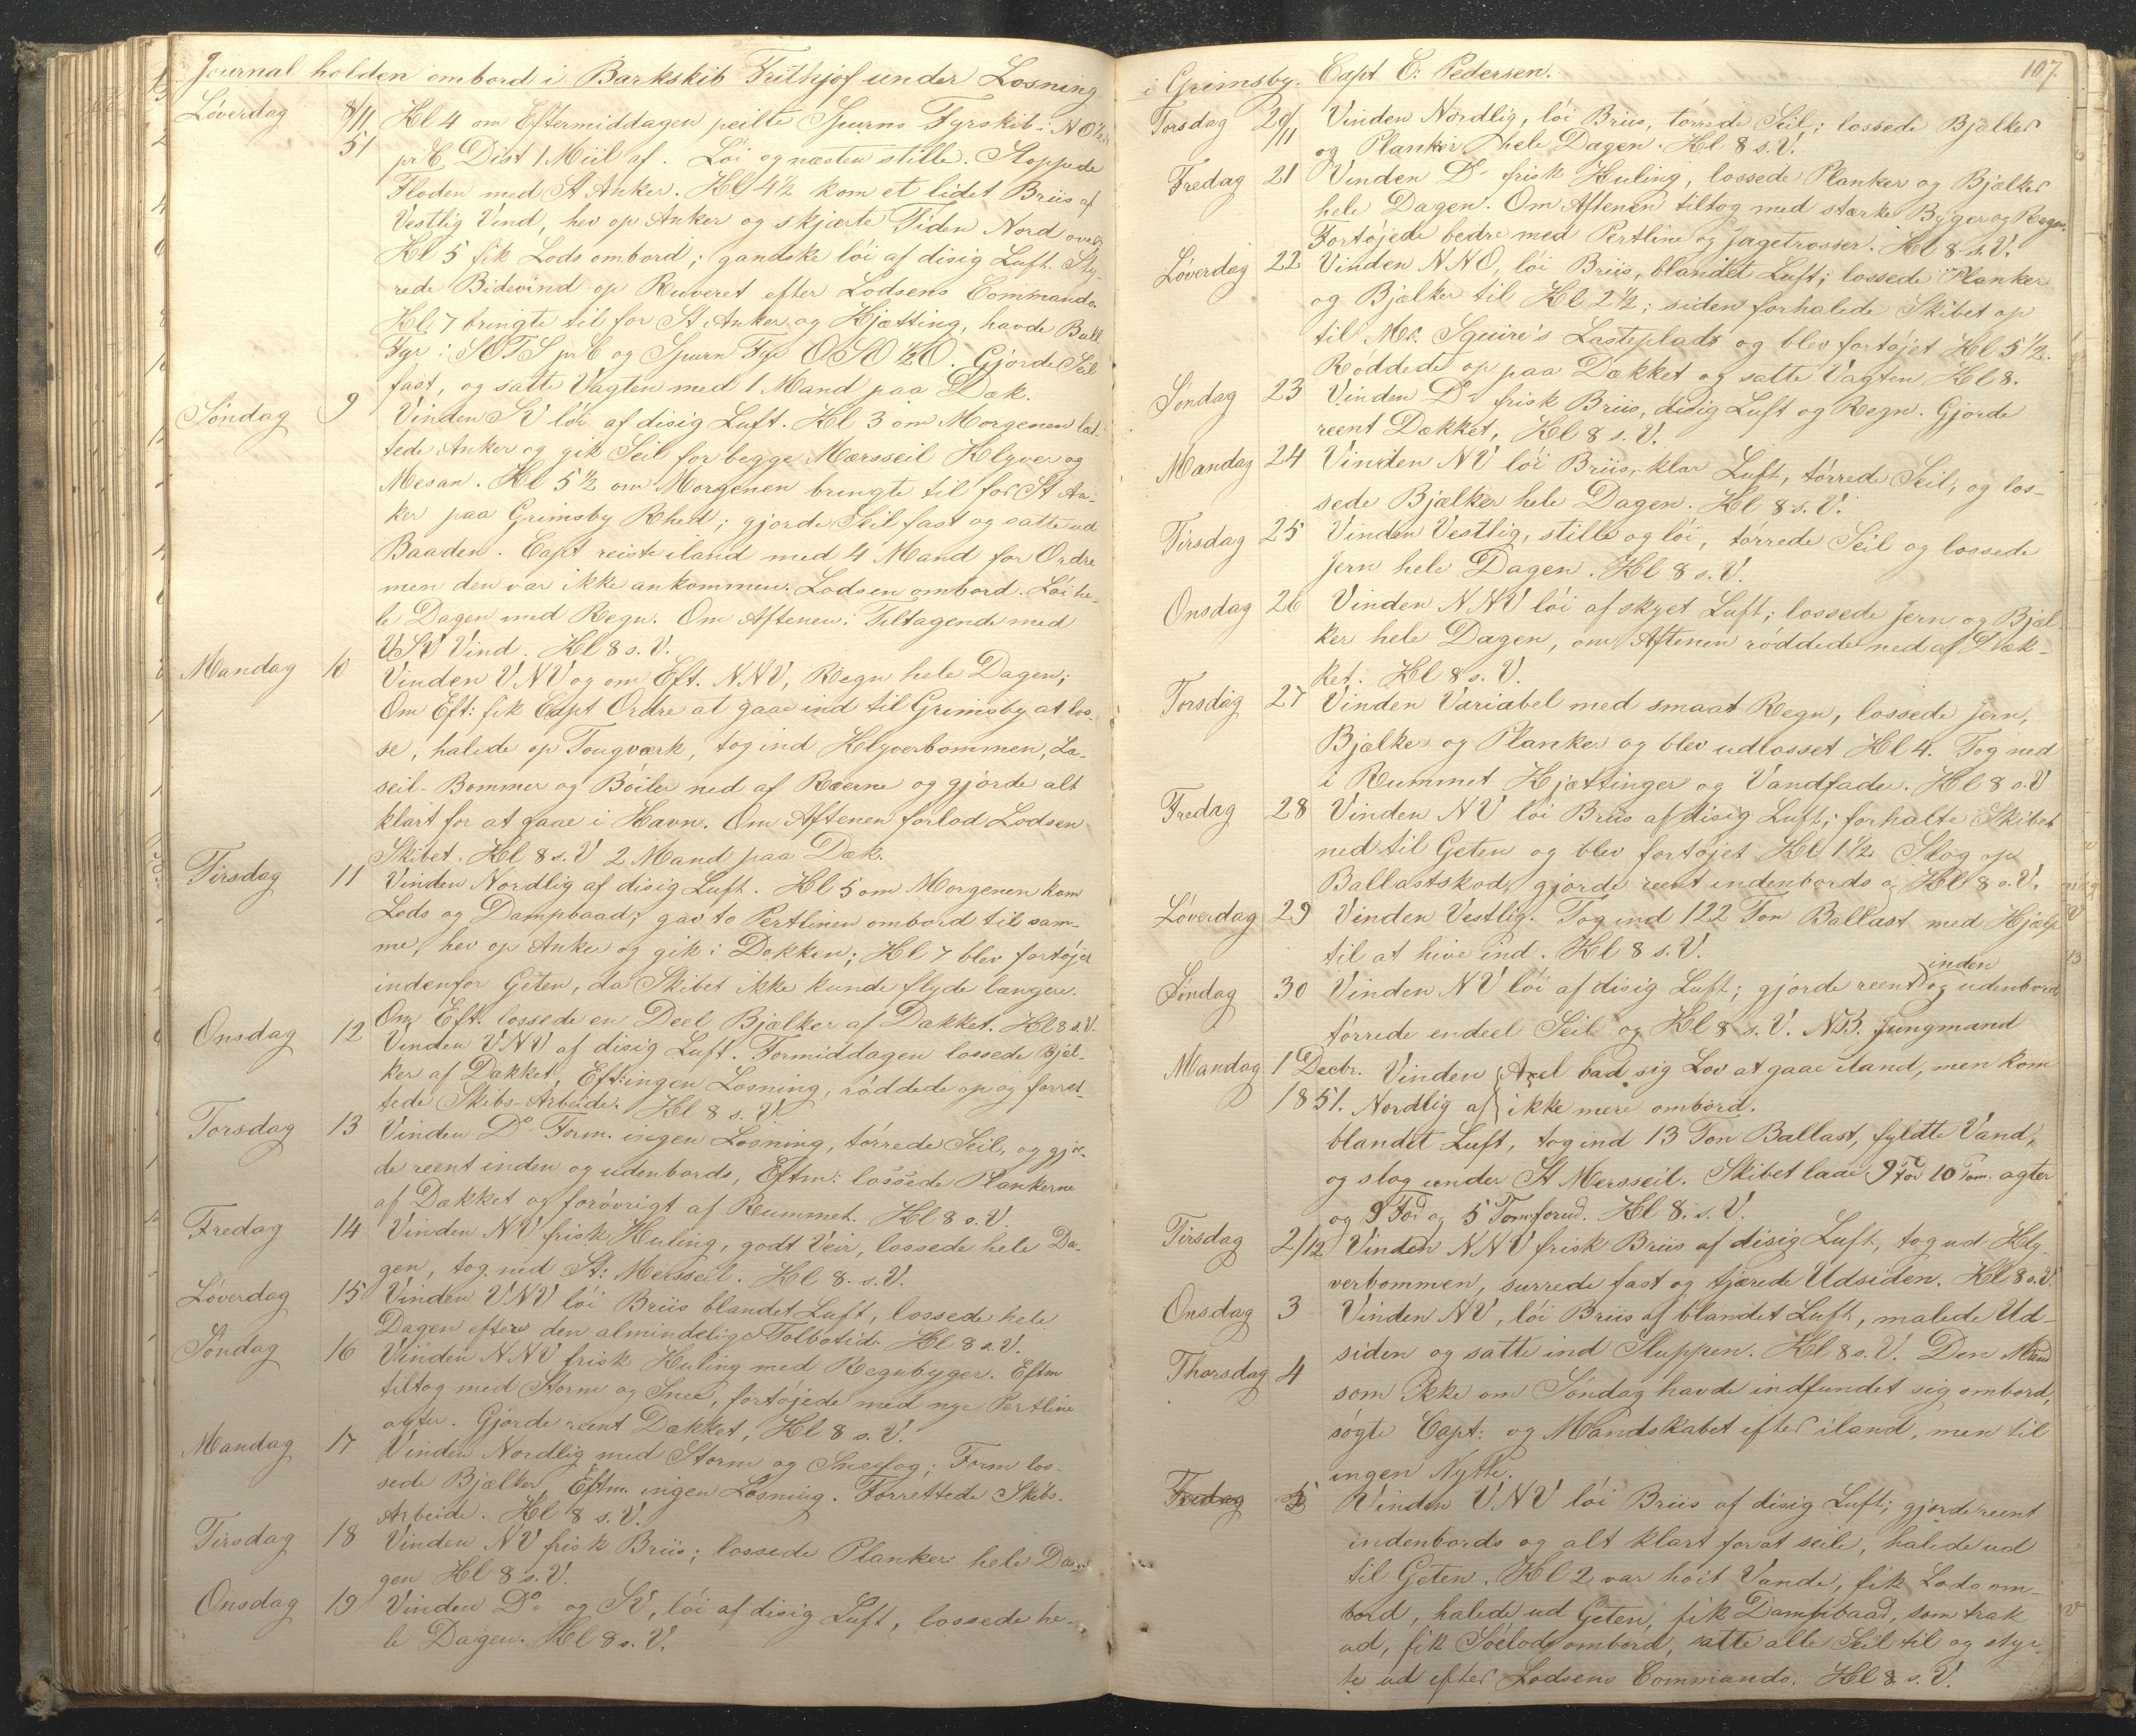 Journal holden ombord i Barkskib Frithjof under Losning
Løverdag 8/11 Kl 4 om Eftermiddagen peilte Spurns Fyrskib i NO½
51 pr C, Dist 1 Miil af. Løi og næsten stille. Stoppede
Floden med St Anker. Kl 4½ kom et lidet Briis af
Vestlig Vind, hev op Anker og skjærte Tiden Nord over
Kl 5 fik Lods ombord; gandske løi af disig Luft. Sty-
rede Bidevind op Ruveret efter Lodsens Commando
Kl 7 bringte til for St Anker og Kjætting, havde Bull
Fyr i SOTS pr C og Spurn Fyr OSO½O. Gjorde Seil
fast, og satte Vagten med 1 Mand paa Dæk.
Søndag 9 Vinden SV løi af disig Luft. Kl 3 om Morgenen let-
tede Anker og gik Seil for begge Mærsseil Klyver og
Mesan. Kl 5½ om Morgenen bringte til for St An-
ker paa Grimsby Rhed; gjorde Seil fast og satte ud
Baaden. Capt reiste iland med 4 Mand for Ordre
men den var ikke ankommen. Lodsen ombord. Løi he-
le Dagen med Regn. Om Aftenen: Tiltagende med
VSV Vind. Kl 8 s. V.
Mandag 10 Vinden VNV og om Eft. NNV, Regn hele Dagen;
Om Eft: fik Capt Ordre at gaae ind til Grimsby at los-
se, halede op Tougværk, tog ind Klyverbommen, Læ-
seil-Bommer og Böiler ned af Ræerne og gjorde alt
klart for at gaae i Havn. Om Aftenen forlod Lodsen
Skibet. Kl 8 s. V 2 Mand paa Dæk.
Tirsdag 11 Vinden Nordlig af disig Luft. Kl 5 om Morgenen kom
Lods og Dampbaad, gav to Pertliner ombord til sam-
me, hev op Anker og gik i Dokken; Kl 7 blev fortøjet
indenfor Geten, da Skibet ikke kunde flyde længere.
Om Eft. lossede en Deel Bjælker af Dækket. Kl 8 s. V.
Onsdag 12 Vinden VNV af disig Luft. Formiddagen lossede Bjæl-
ker af Dækket, Eft: ingen Losning, røddede op og forret-
tede Skibs-Arbeide. Kl 8 s. V.
Torsdag 13 Vinden Do Form. ingen Losning, tørrede Seil, og gjor-
de reent inden og udenbords, Eftm: lossede Plankerne
af Dækket og forøvrigt af Rummet. Kl 8 s. V.
Fredag 14 Vinden NV frisk Kuling, godt Veir, lossede hele Da-
gen, tog ned St: Mersseil. Kl 8. s. V.
Løverdag 15 Vinden VNV løi Briis blandet Luft, lossede hele
Dagen efter den almindelige Tolbotid. Kl 8 s. V.
Søndag 16 Vinden NNV frisk Kuling med Regnbyger. Eftm
tiltog med Storm og Snee, fortøjede med nye Pertline
agter. Gjorde reent Dækket, Kl 8 s. V.
Mandag 17 Vinden Nordlig med Storm og Sneefog; Form los-
sede Bjælker, Eftm. ingen Losning. Forrettede Skibs-
Arbeide. Kl 8 s. V.
Tirsdag 18 Vinden NV frisk Briis; lossede Planker hele Da-
gen Kl 8 s. V.
Onsdag 19 Vinden Do og SV, løi af disig Luft, lossede he-
le Dagen. Kl 8 s. V.
107.
i Grimsby. Capt E: Pedersen.
Torsdag 20/11 Vinden Nordlig, løi Briis, tørrede Seil; lossede Bjælker
og Planker hele Dagen. Kl 8 s. V.
Fredag 21 Vinden Do frisk Kuling, lossede Planker og Bjælker
hele Dagen. Om Aftenen tiltog med stærke Byger og Regn.
Fortøjede bedre med Pertline og Jagetrosser. Kl 8 s. V.
Løverdag 22 Vinden NNO, løi Briis, blandet Luft; lossede Planker
og Bjælker til Kl 2½; siden forhalede Skibet op
til Mr. Squire's Lasteplads og blev fortøjet Kl 5½.
Røddede op paa Dækket og satte Vagten Kl 8.
Søndag 23 Vinden Do frisk Briis, disig Luft og Regn. Gjorde
reent Dækket, Kl 8 s. V.
Mandag 24 Vinden NV løi Briis, klar Luft, tørrede Seil, og los-
sede Bjælker hele Dagen. Kl 8 s. V.
Tirsdag 25 Vinden Vestlig, stille og løi, tørrede Seil og lossede
Jern hele Dagen. Kl 8 s. V.
Onsdag 26 Vinden NNV løi af skyet Luft; lossede Jern og Bjæl-
ker hele Dagen, om Aftenen røddede ned af Dæk-
ket. Kl 8 s. V.
Torsdag 27 Vinden Variabel med smaat Regn, lossede Jern,
Bjælker og Planker og blev udlosset Kl 4. Tog ned
i Rummet Kjættinger og Vandfade. Kl 8 s. V
Fredag 28 Vinden NV løi Briis af disig Luft; forhalte Skibet
ned til Geten og blev fortøjet Kl 1½. Slog op
Ballastskod, gjorde reent indenbords og Kl 8 s. V.
Løverdag 29 Vinden Vestlig. Tog ind 122 Ton Ballast med Hjælp
til at hive ind. Kl 8 s. V.
inden
Søndag 30 Vinden NV løi af disig Luft; gjorde reent og udenbords
tørrede endeel Seil og Kl 8 s. V. NB. Jungmand
Mandag 1 Decbr. Vinden Axel bad sig Lov at gaae iland, men kom
1851. Nordlig af ikke mere ombord.
blandet Luft, tog ind 13 Ton Ballast, fyldte Vand,
og slog under St Mersseil. Skibet laae 9 Fod 10 Tom. agter
og 9 Fod og 5 Tom forud. Kl 8. s. V.
Tirsdag 2/12 Vinden NNV frisk Briis af disig Luft, tog ud Kly-
verbommen, surrede fast og tjærede Udsiden. Kl 8 s. V.
Onsdag 3 Vinden NV, løi Briis af blandet Luft, malede Ud-
siden og satte ind Sluppen. Kl 8 s. V. Den Mand
Thorsdag 4 som ikke om Søndag havde indfundet sig ombord,
søgte Capt: og Mandskabet efter iland, men til
ingen Nytte.
Fredag 5 Vinden VNV løi Briis af disig Luft; gjorde reent
indenbords og alt klart for at seile, halede ud
til Geten. Kl 2 var høit Vande, fik Lods om-
bord, halede ud Geten, fik Dampbaad, som trak
ud, fik Søelods ombord, satte alle Seil til og styr-
te ud efter Lodsens Commando. Kl 8 s. V.